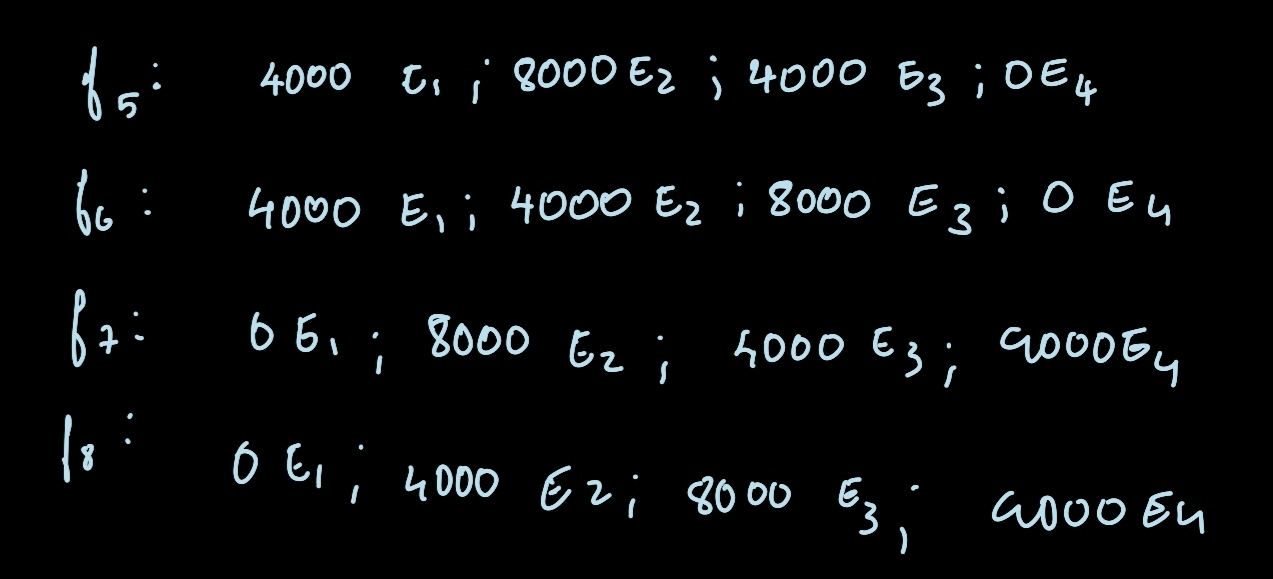 f5: 4000 E1; 8000 E2; 4000 E3; 0 E4
f6: 4000 E1; 4000 E2; 8000 E3; 0 E4
f7: 0 E1; 8000 E2; 4000 E3; 4000 E4
f8: 0 E1; 4000 E2; 8000 E3; 4000 E4